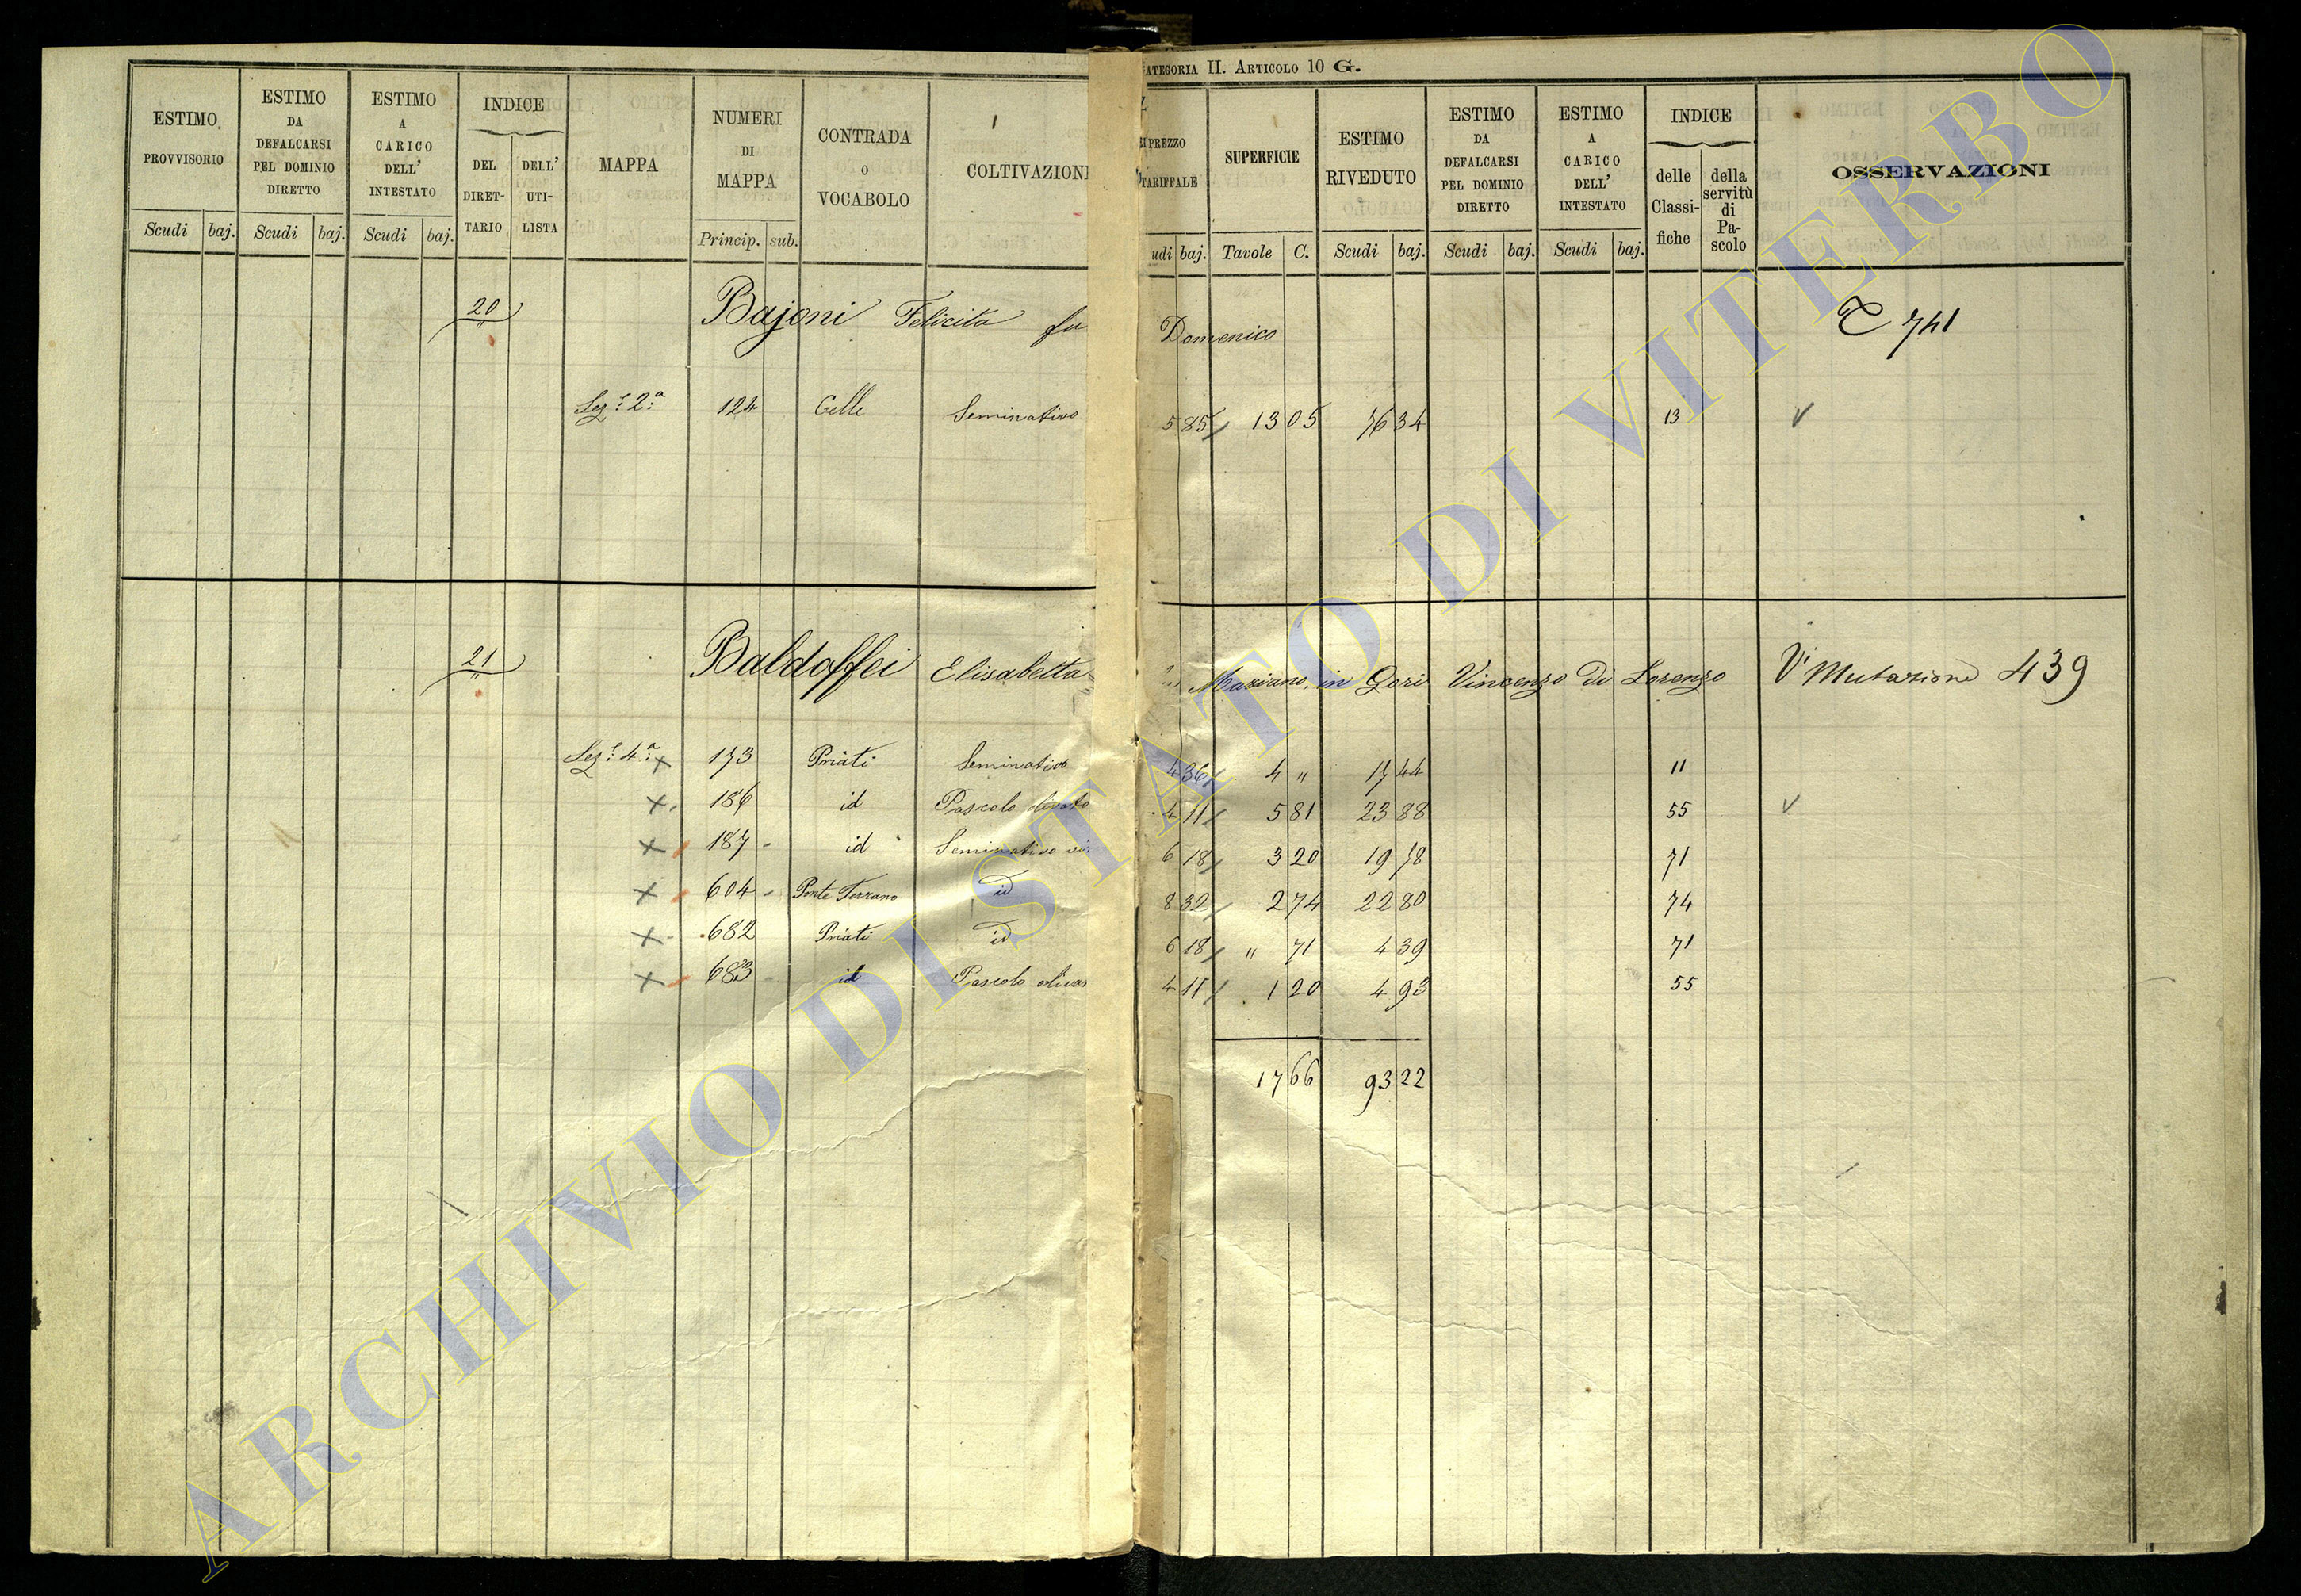 CATEGORIA II. ARTICOLO 10 G.
ESTIMO PROVVISORIO
ESTIMO DA DEFALCARSI PEL DOMINIO DIRETTO
ESTIMO A CARICO DELL' INTESTATO
INDICE
DEL DIRETTARIO
DELL' UTILISTA
MAPPA
NUMERI DI MAPPA
CONTRADA O VOCABOLO
COLTIVAZIONI
PREZZO TARIFFALE
SUPERFICIE
ESTIMO RIVEDUTO
ESTIMO DA DEFALCARSI PEL DOMINIO DIRETTO
ESTIMO A CARICO DELL' INTESTATO
INDICE
delle Classifiche
della servitù di Pascolo
OSSERVAZIONI
Scudi baj. Scudi baj. Scudi baj. Princip. sub. udi baj. Tavole C. Scudi baj. Scudi baj. Scudi baj.
20 Bajoni Felicita fu Domenico 741
Sez.e 2.a 124 Celle Seminativo 5 85 13 05 76 34 13 V
21 Baldoffei Elisabetta Maziano, in Gori Vincenzo di Lorenzo V' Mutazione 439
Sez.e 4.a x 173 Priati Seminativo 4 36 4 " 17 44 11
x 186 id Pascolo olivato 4 11 5 81 23 88 55 V
x 187 id Seminativo vi 6 18 3 20 19 78 71
x 604 Ponte Terrano id 8 32 2 74 22 80 74
x 682 Priati id 6 18 " 71 4 39 71
x 683 id Pascolo olivat 4 11 1 20 4 93 55
17 66 93 22
ARCHIVIO DI STATO DI VITERBO